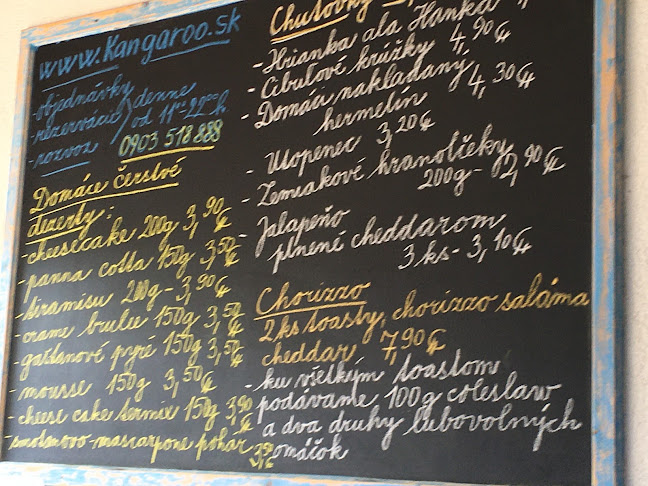 www.Kangaroo.sk
-objednávky
-rezervácie
-rozvoz
denne
od 11⁰⁰-22⁰⁰h.
0903 518 888
Domáce čerstvé
dezerty:
-cheesecake 200g 3,90€
-panna cotta 150g 3,50€
-tiramisu 200g - 3,90€
-crame brulee 150g 3,50€
-gaštanové pyré 150g 3,50€
-mousse 150g 3,50€
-cheese cake termix 150g 3,90€
-smotanovo-mascarpone pohár 3,90
Chuťovky
-Hrianka ala Hanka
-Cibuľové krúžky 4,90€
-Domáci nakladaný
hermelín 4,30€
-Utopenec 3,20€
-Zemiakové hranolčeky
200g - 2,90€
-Jalapeño
plnené cheddarom
3 ks - 3,10€
Chorizzo
2 ks toasty, chorizzo saláma
cheddar 7,90€
-ku všetkým toastom
podávame 100g coleslaw
a dva druhy ľubovoľných
omáčok